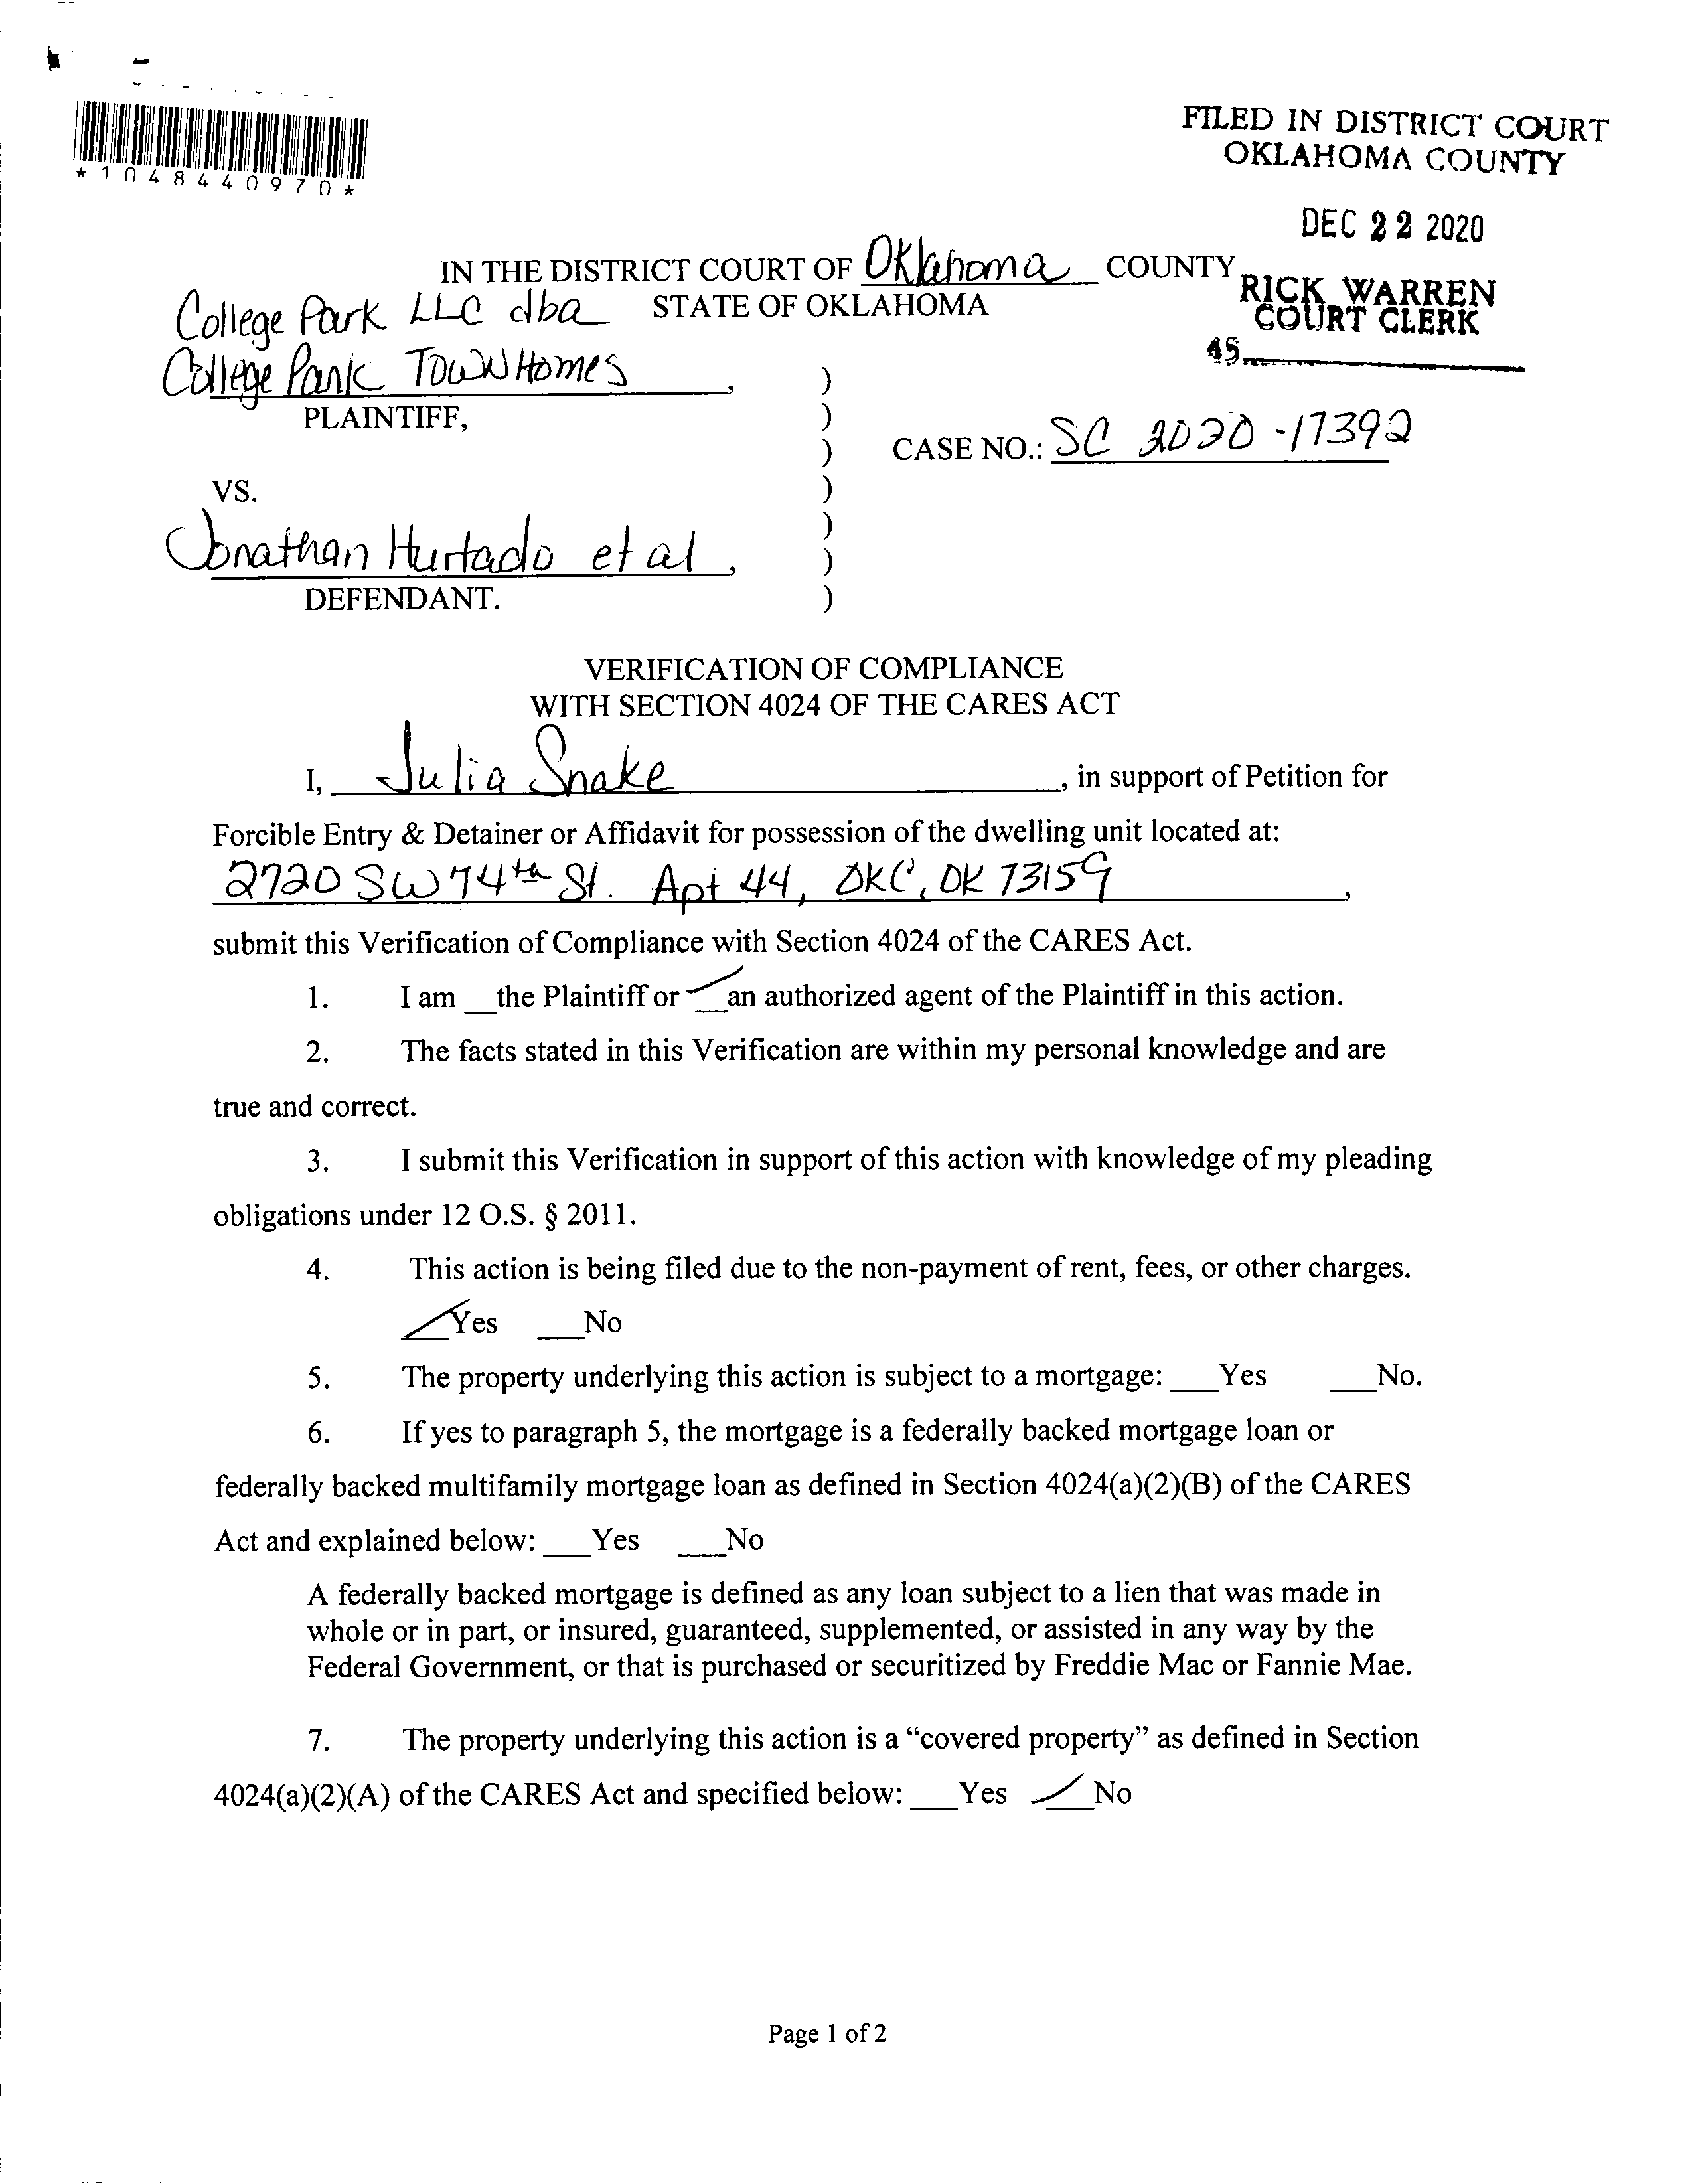 *1048440970*
FILED IN DISTRICT COURT
OKLAHOMA COUNTY
DEC 22 2020
RICK WARREN
COURT CLERK
45
IN THE DISTRICT COURT OF Oklahoma COUNTY
STATE OF OKLAHOMA
College Park LLC dba
College Park TownHomes,
PLAINTIFF,
)
)
)
)
)
)
)
CASE NO.: SC 2020-17392
VS.
Jonathan Hurtado et al,
DEFENDANT.
VERIFICATION OF COMPLIANCE
WITH SECTION 4024 OF THE CARES ACT
I, Julia Snake, in support of Petition for
Forcible Entry & Detainer or Affidavit for possession of the dwelling unit located at:
2720 SW 74th St. Apt 44, OKC, OK 73159,
submit this Verification of Compliance with Section 4024 of the CARES Act.
1. I am __the Plaintiff or __an authorized agent of the Plaintiff in this action.
2. The facts stated in this Verification are within my personal knowledge and are
true and correct.
3. I submit this Verification in support of this action with knowledge of my pleading
obligations under 12 O.S. § 2011.
4. This action is being filed due to the non-payment of rent, fees, or other charges.
___Yes ___No
5. The property underlying this action is subject to a mortgage: ___Yes ___No.
6. If yes to paragraph 5, the mortgage is a federally backed mortgage loan or
federally backed multifamily mortgage loan as defined in Section 4024(a)(2)(B) of the CARES
Act and explained below: ___Yes ___No
A federally backed mortgage is defined as any loan subject to a lien that was made in
whole or in part, or insured, guaranteed, supplemented, or assisted in any way by the
Federal Government, or that is purchased or securitized by Freddie Mac or Fannie Mae.
7. The property underlying this action is a “covered property” as defined in Section
4024(a)(2)(A) of the CARES Act and specified below: ___Yes ___No
Page 1 of 2